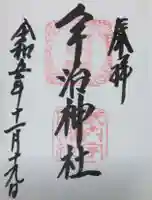 奉拝
宇治神社
令和五年十一月十九日